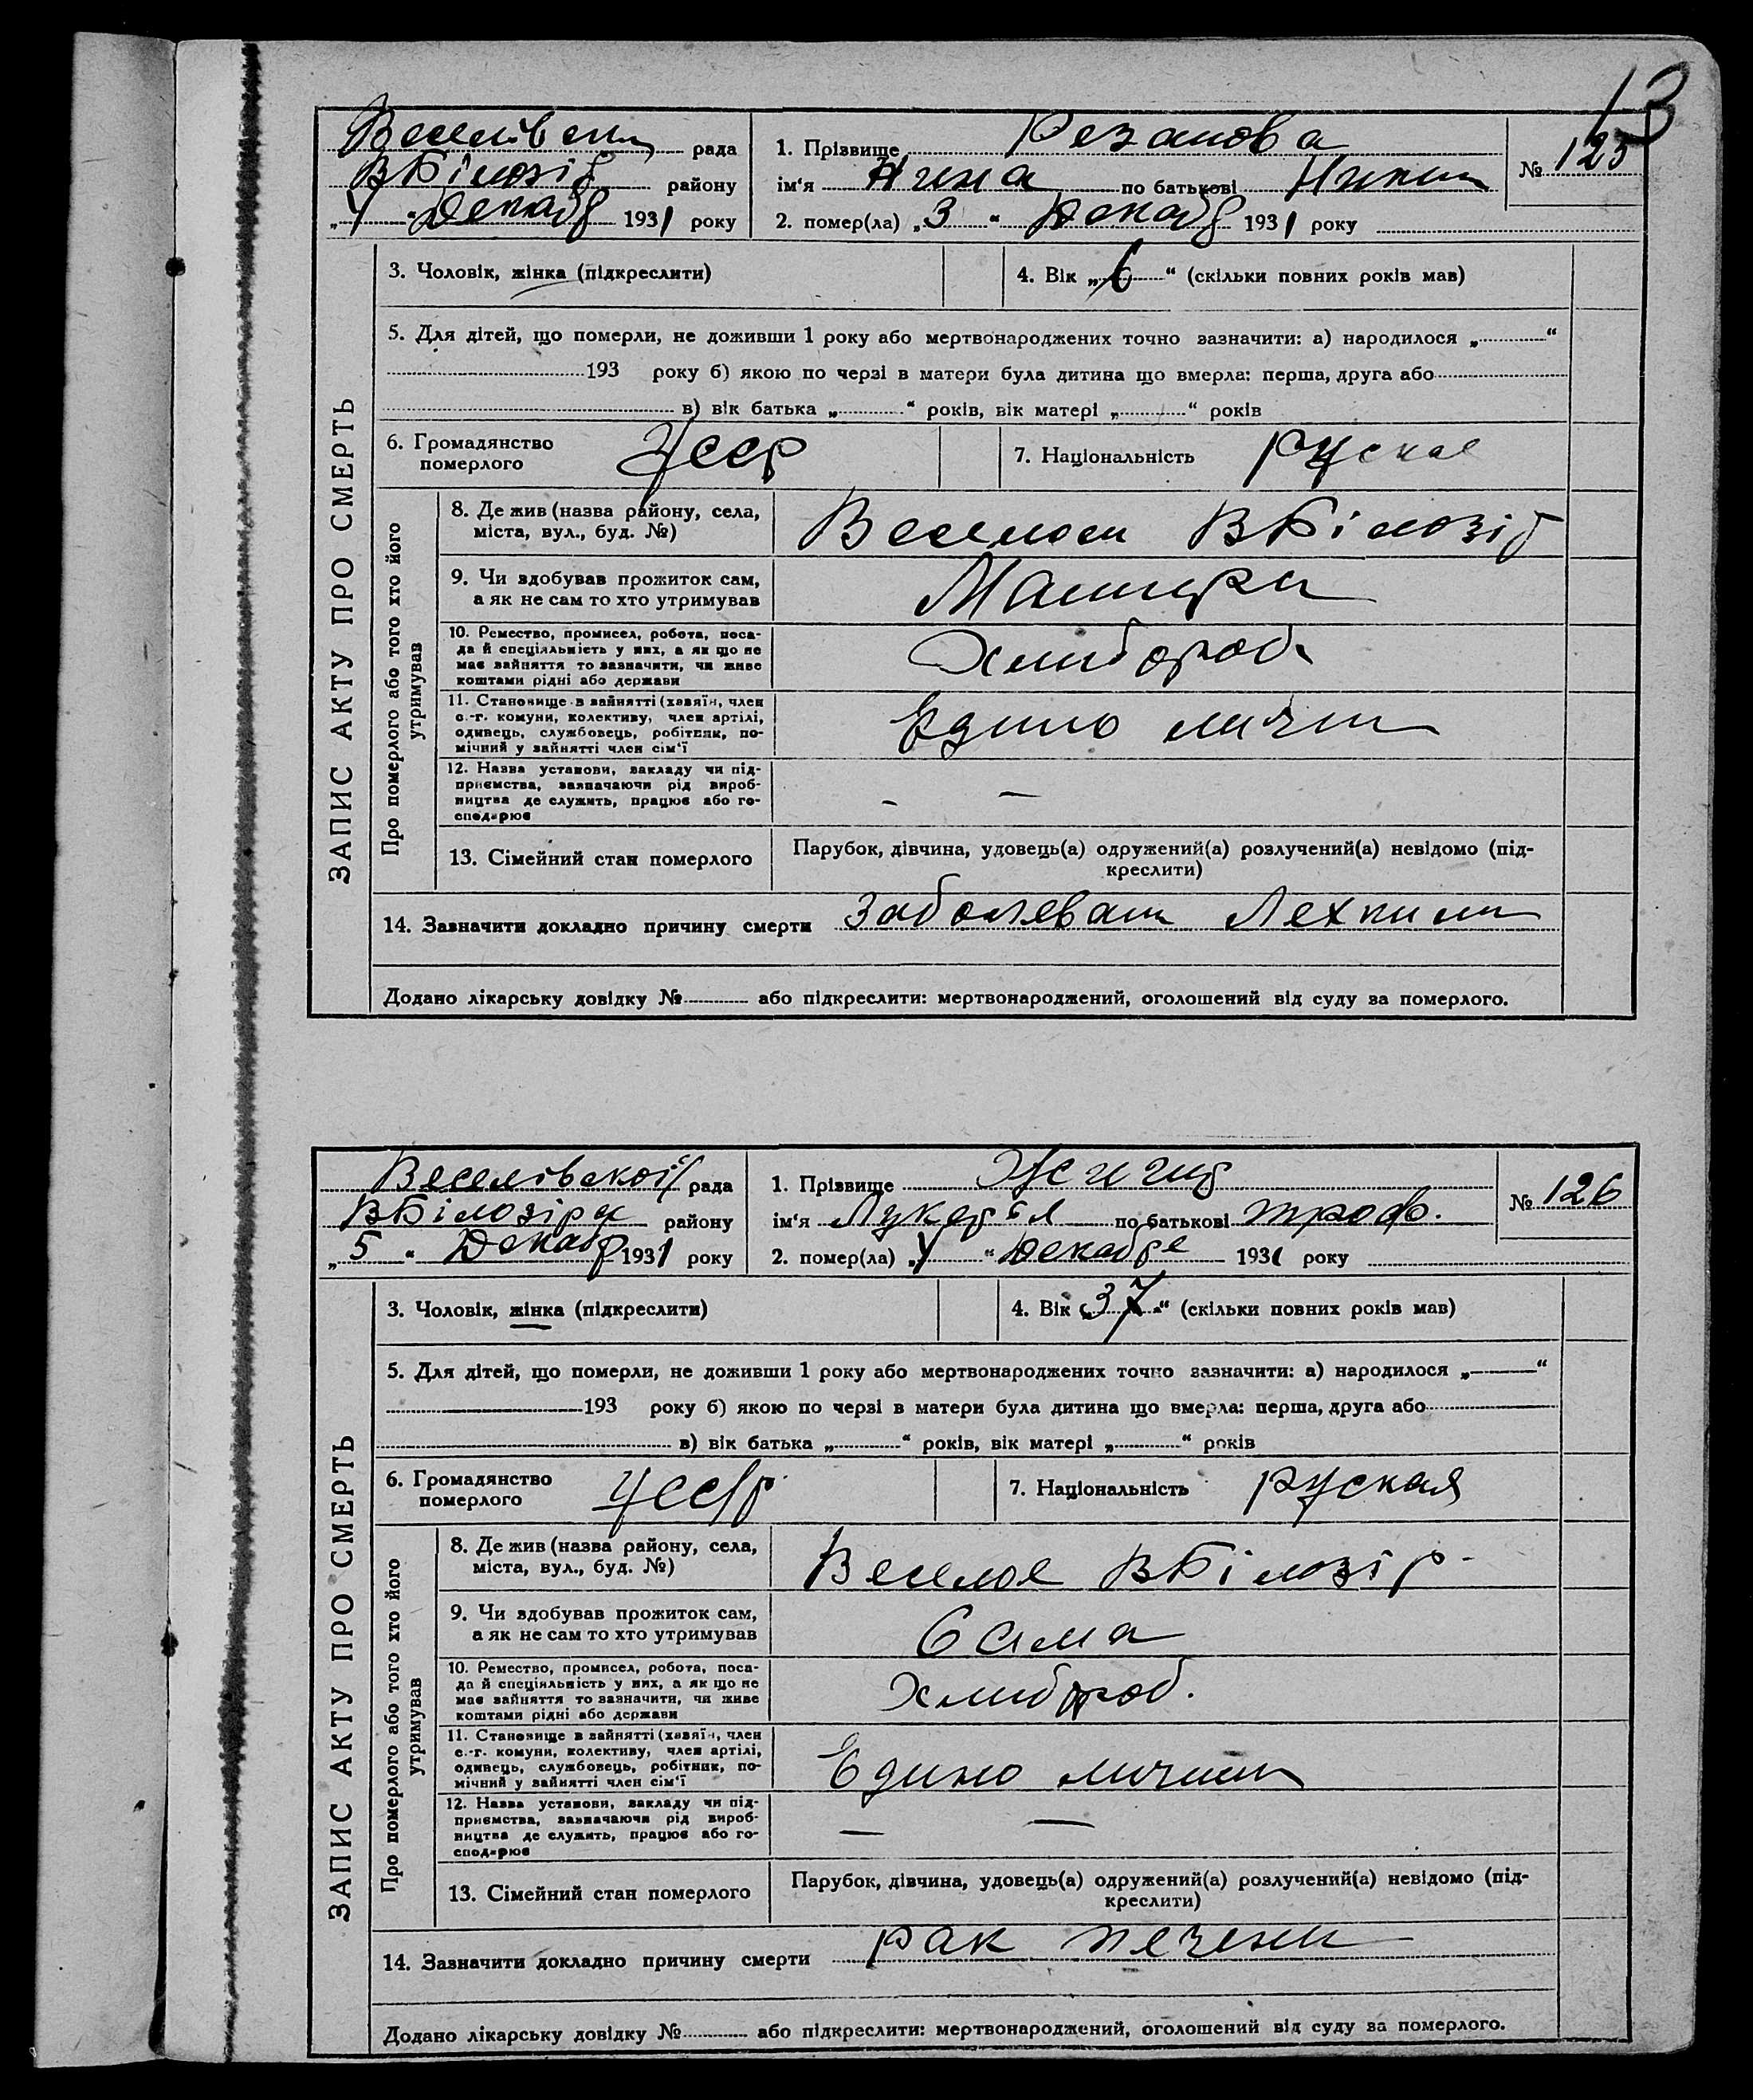 13
Веселівськ рада
ВБілозір району
„4“ Декабр 1931 року
1. Прізвище Резанова
ім‘я Нина по батькові Никит
2. помер(ла) „3“ Декабр 1931 року
№ 125
ЗАПИС АКТУ ПРО СМЕРТЬ
3. Чоловік, жінка (підкреслити)
4. Вік „6“ (скільки повних років мав)
5. Для дітей, що померли, не доживши 1 року або мертвонароджених точно зазначити: а) народилося „ “
193 року б) якою по черзі в матери була дитина що вмерла: перша, друга або
в) вік батька „ “ років, вік матері „ “ років
6. Громадянство
померлого
Усср
7. Національність руская
Про померлого або того хто його
утримував
8. Де жив (назва району, села,
міста, вул., буд. №)
Веселои ВБілозір
9. Чи здобував прожиток сам,
а як не сам то хто утримував
10. Ремество, промисел, робота, поса-
да й спеціяльність у них, а як що не
має зайняття то зазначити, чи живе
коштами рідні або держави
Хлибороб
11. Становище в зайнятті (хазяїн, член
с.-г. комуни, колективу, член артілі,
одивець, службовець, робітник, по-
мічний у зайнятті член сім‘ї
Едино личн
12. Назва установи, закладу чи під-
приємства, зазначаючи рід вироб-
ництва де служить, працює або го-
сподарює
– –
13. Сімейний стан померлого
Парубок, дівчина, удовець(а) одружений(а) розлучений(а) невідомо (під-
креслити)
14. Зазначити докладно причину смерти Заболеван Лехкими
Додано лікарську довідку № або підкреслити: мертвонароджений, оголошений від суду за померлого.
Веселівської рада
ВБілозірк району
„5“ Декабр 1931 року
1. Прізвище
ім‘я Лукерія по батькові Троф.
2. помер(ла) „4“ Декабре 1931 року
№ 126
ЗАПИС АКТУ ПРО СМЕРТЬ
3. Чоловік, жінка (підкреслити)
4. Вік „37“ (скільки повних років мав)
5. Для дітей, що померли, не доживши 1 року або мертвонароджених точно зазначити: а) народилося „ “
193 року б) якою по черзі в матери була дитина що вмерла: перша, друга або
в) вік батька „ “ років, вік матері „ “ років
6. Громадянство
померлого
Уссср
7. Національність руская
Про померлого або того хто його
утримував
8. Де жив (назва району, села,
міста, вул., буд. №)
Веселое ВБілозір
9. Чи здобував прожиток сам,
а як не сам то хто утримував
Сама
10. Ремество, промисел, робота, поса-
да й спеціяльність у них, а як що не
має зайняття то зазначити, чи живе
коштами рідні або держави
Хлибороб.
11. Становище в зайнятті (хазяїн, член
с.-г. комуни, колективу, член артілі,
одивець, службовець, робітник, по-
мічний у зайнятті член сім‘ї
Едино личник
12. Назва установи, закладу чи під-
приємства, зазначаючи рід вироб-
ництва де служить, працює або го-
сподарює
– –
13. Сімейний стан померлого
Парубок, дівчина, удовець(а) одружений(а) розлучений(а) невідомо (під-
креслити)
14. Зазначити докладно причину смерти рак печени
Додано лікарську довідку № або підкреслити: мертвонароджений, оголошений від суду за померлого.